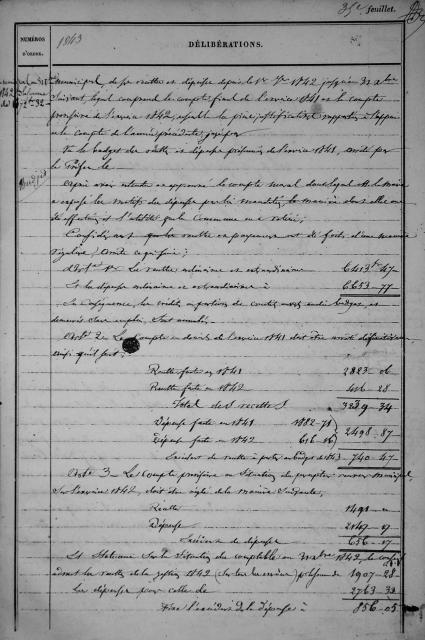 35e feuillet.
NUMÉROS D'ORDRE.
1843
DÉLIBÉRATIONS.
municipal, des recettes et dépenses depuis le 1er 1842 jusqu'au 31 Xbre
suivant, lequel comprend le compte final de l'exercice 1841 et le compte
provisoire de l'exercice 1842, ensemble les pièces justificatives rapportées à l'appui
le compte de l'année précédente
Vu le budget des recettes et dépenses présumées de l'exercice 1841, arrêté par
le Préfet le
Après avoir entendu et approuvé le compte moral dans lequel M. le Maire
a exposé les motifs des dépenses par lui mandatées, la manière dont elles ont
été effectuées et l'utilité que la Commune en a retiré;
Considérant que les recettes et payements ont été faits d'une manière
régulière; arrête ce qui suit;
Art. 1er Les recettes ordinaires et extraordinaires 6413 47
Et les dépenses ordinaires et extraordinaires à 6653 - 77
En conséquence, les crédits ou portions de crédits
demeurés sans emploi, sont annulés.
Art. 2e Le compte en deniers de l'exercice 1841 doit être arrêté définitivement
ainsi qu'il suit:
Recettes faites en 1841 2823 - 06
Recettes faites en 1842 416 - 28
Total des recettes 3239 - 34
Dépenses faites en 1841 1882 - 71
Dépenses faites en 1842 616 - 16
2498 - 87
Excédent de recettes à porter au budget de 1843 740 - 47
Art. 3 - Le compte provisoire
sur l'exercice 1842, doit être réglé de la manière suivante;
Recettes 1491
Dépenses 2147 - 17
Excédent de dépenses 656 - 17
Et statuant sur la situation du comptable au 31 Xbre 1842, le conseil
admet les recettes de la gestion 1842 pour la somme de 1907 - 28
Les dépenses pour celle de 2763 - 33
Fixe l'excédent de la dépense à 856 - 05